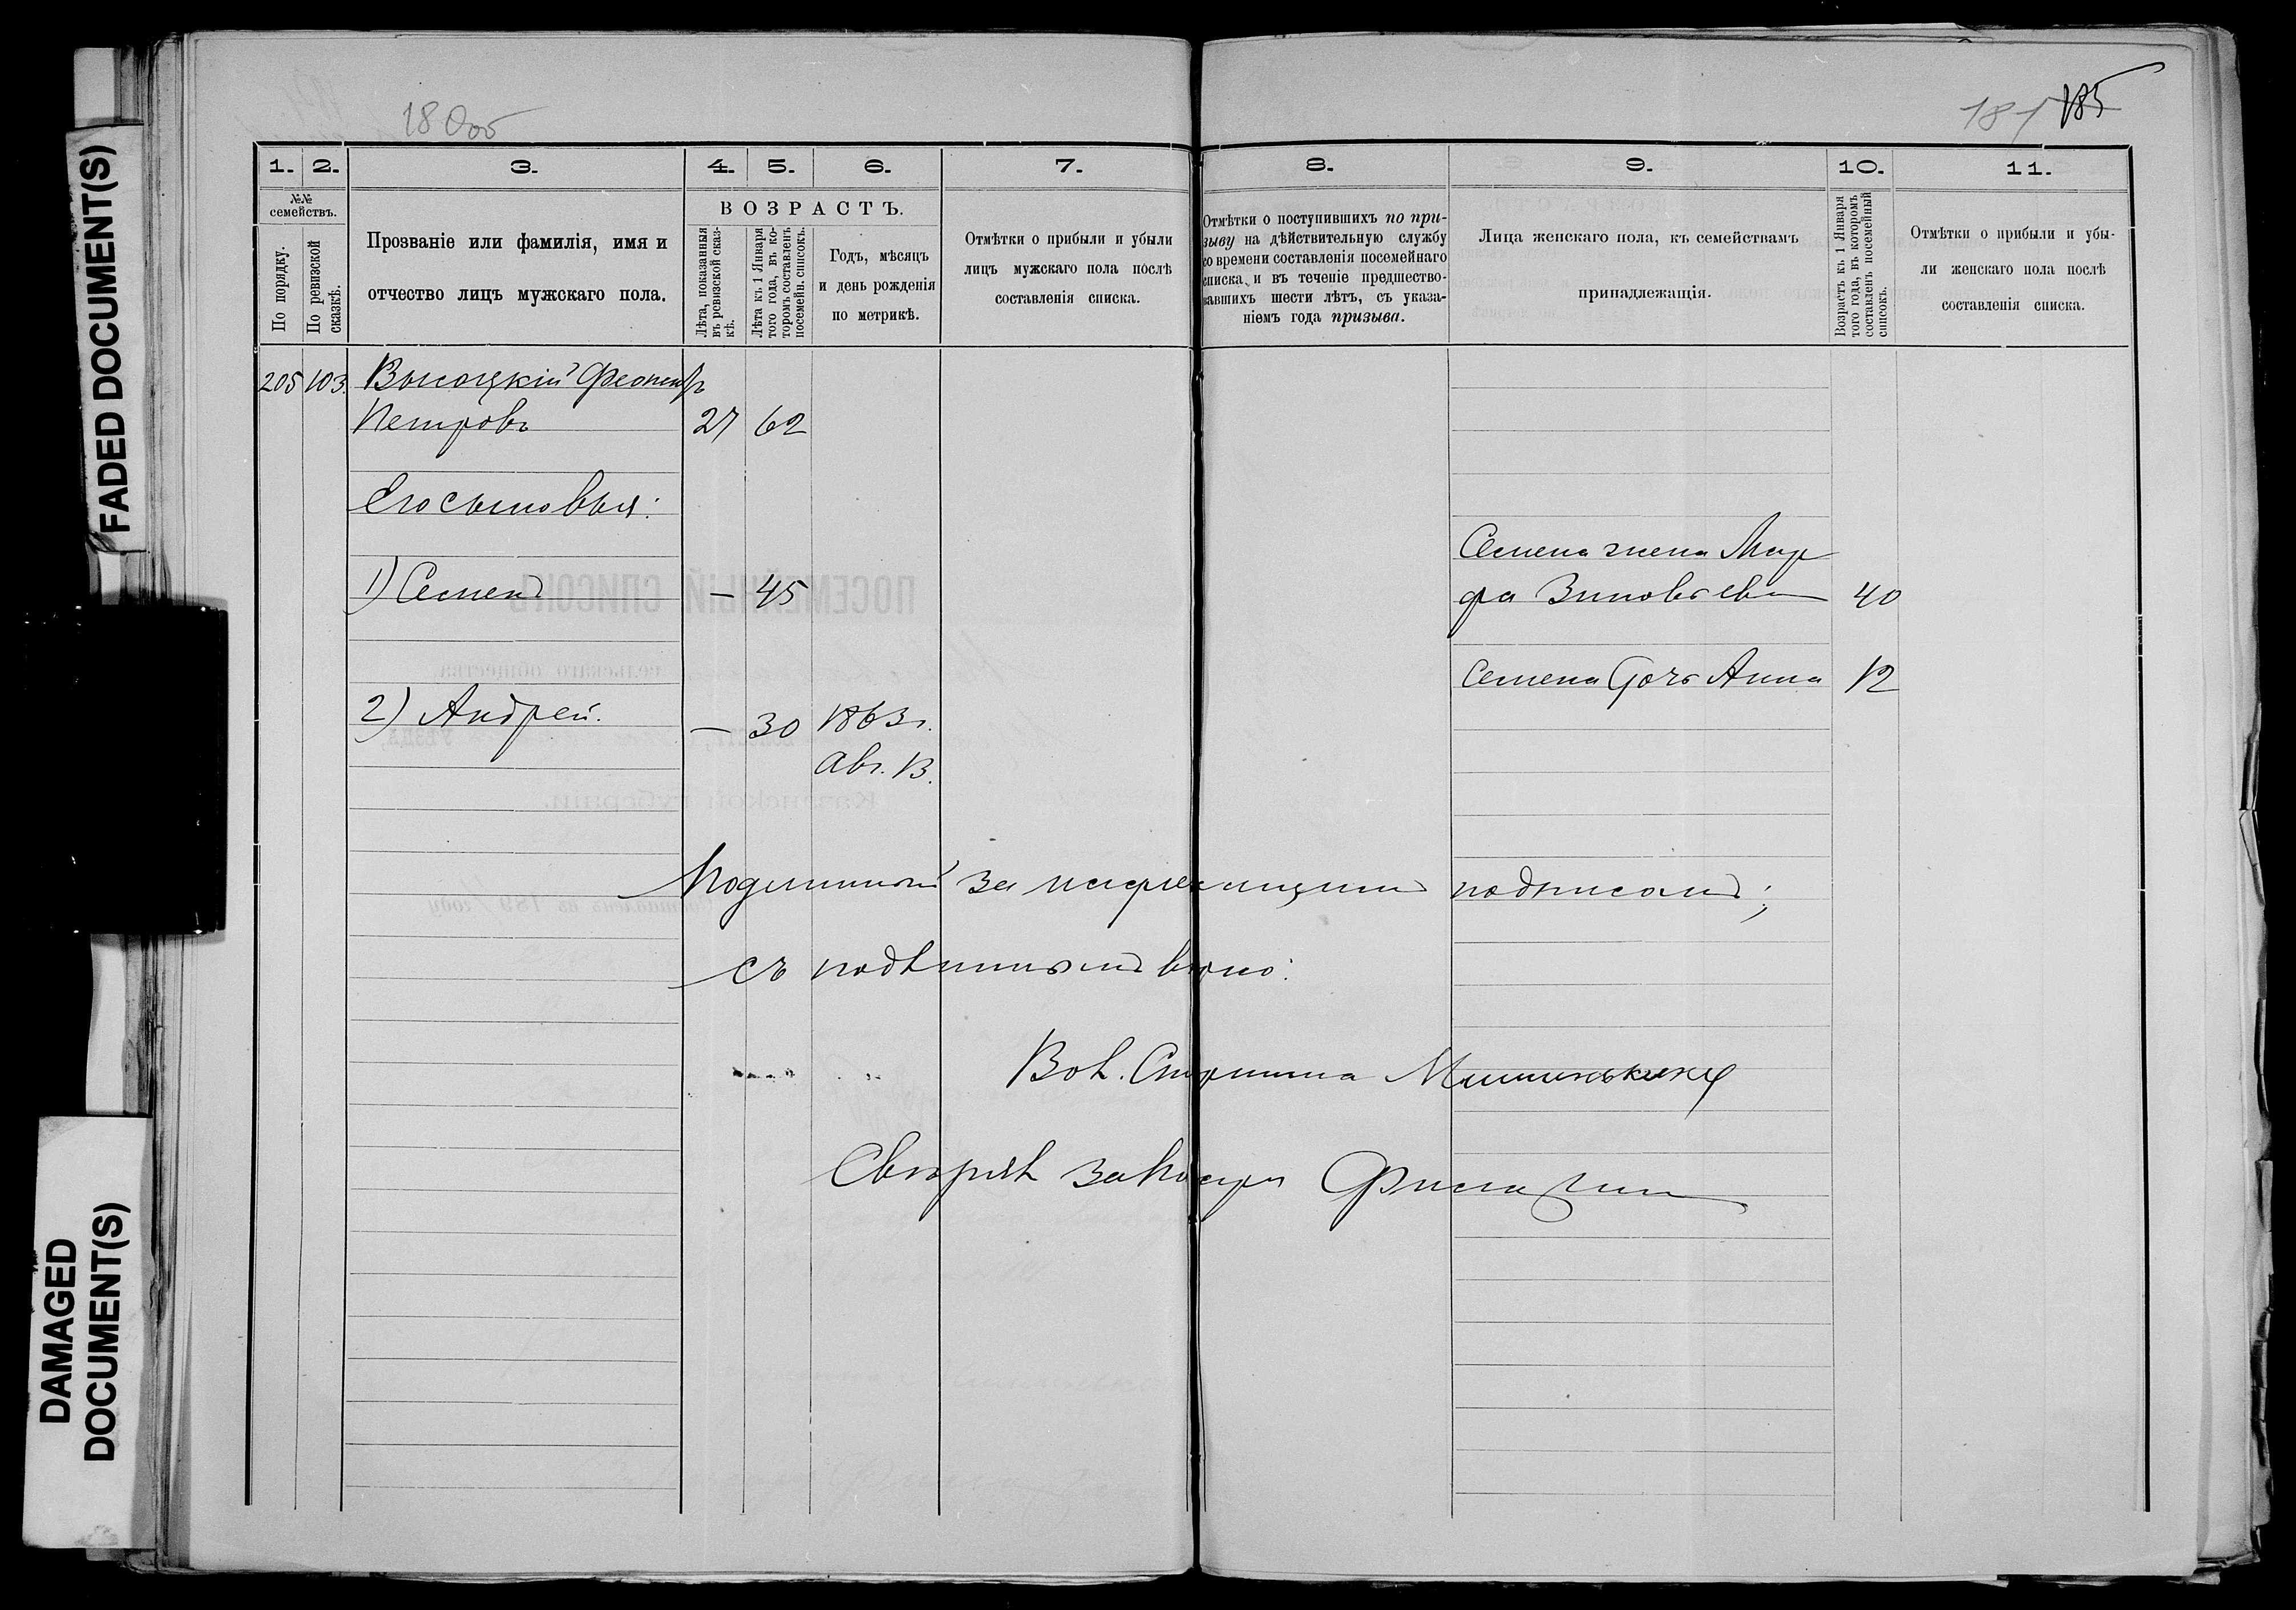 FADED DOCUMENT(S)
DAMAGED
DOCUMENT(S)
180об
181 185
1. 2. 3. 4. 5. 6. 7. 8. 9. 10. 11.
№№
семействъ.
По порядку.
По ревизской
сказкѣ.
Прозваніе или фамилія, имя и
отчество лицъ мужскаго пола.
ВОЗРАСТЪ.
Лѣта, показанныя
въ ревизской сказ-
кѣ.
Лѣта къ 1 Января
того года, въ ко-
торомъ составленъ
посемейн. списокъ.
Годъ, мѣсяцъ
и день рожденія
по метрикѣ.
Отмѣтки о прибыли и убыли
лицъ мужскаго пола послѣ
составленія списка.
Отмѣтки о поступившихъ по при-
зыву на дѣйствительную службу
со времени составленія посемейнаго
списка и въ теченіе предшество-
вавшихъ шести лѣтъ, съ указа-
ніемъ года призыва.
Лица женскаго пола, къ семействамъ
принадлежащія.
Возрастъ къ 1 Января
того года, въ которомъ
составленъ посемейный
списокъ.
Отмѣтки о прибыли и убы-
ли женскаго пола послѣ
составленія списка.
205 103. Высоцкій
Петровъ 27 62
Его сыновья:
1) Семенъ — 45
2) Андрей. — 30 1863 г.
Авг. 13.
Семена жена Мар
фа Зиновьева 40
Семена дочь Анна 12
Подлинный за надлежащимъ подписомъ;
съ подлиннымъ вѣрно:
Вол. Старшина Мишинькинъ
Свѣрялъ за Писаря
ПОСЕМЕЙНЫЙ СПИСОКЪ
сельскаго общества
УѢЗДА,
Казанской губерніи.